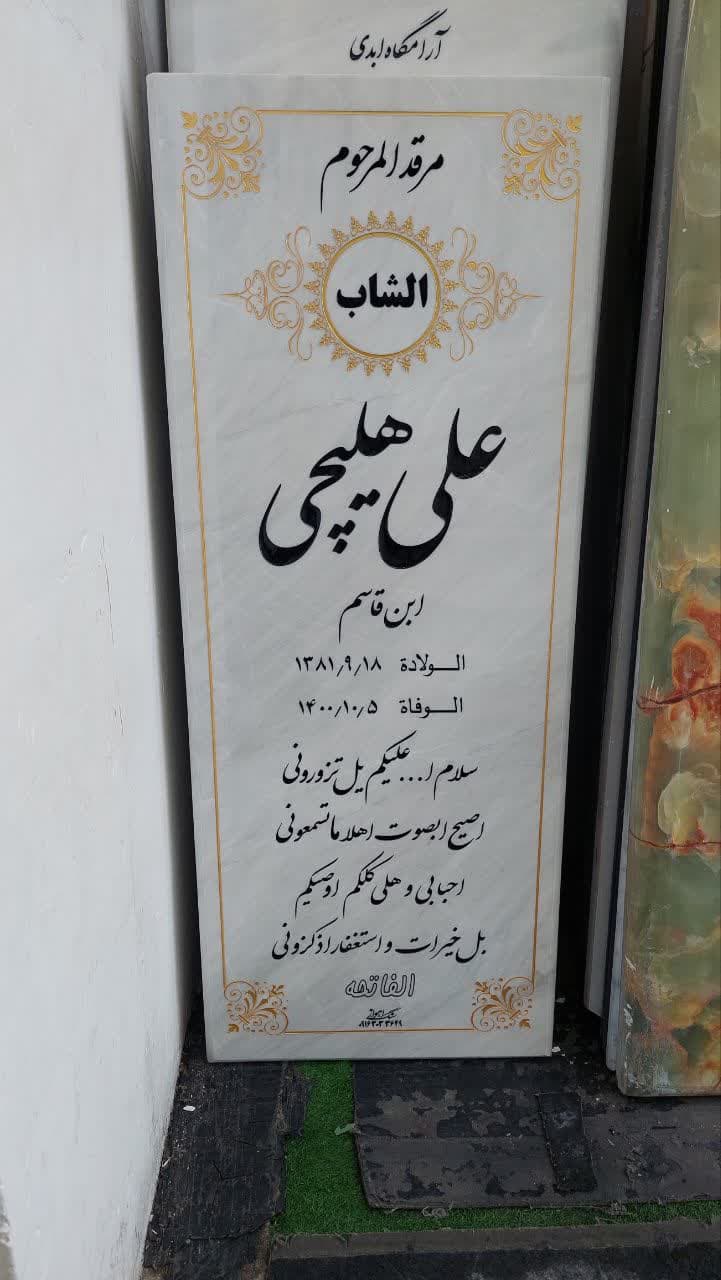 آرامگاه ابدی
مرقد المرحوم
الشاب
علی هلیچی
ابن قاسم
الولادة ۱۳۸۱٫۹٫۱۸
الوفاة ۱۴۰۰٫۱۰٫۵
سلام ا... علیکم یل تزورونی
اصیح ابصوت اهلا ماتسمعونی
احبابی و هلی کلکم اوصیکم
بل خیرات و استغفار اذکرونی
الفاتحه
۰۹۱۶۳۰۳۳۶۴۹